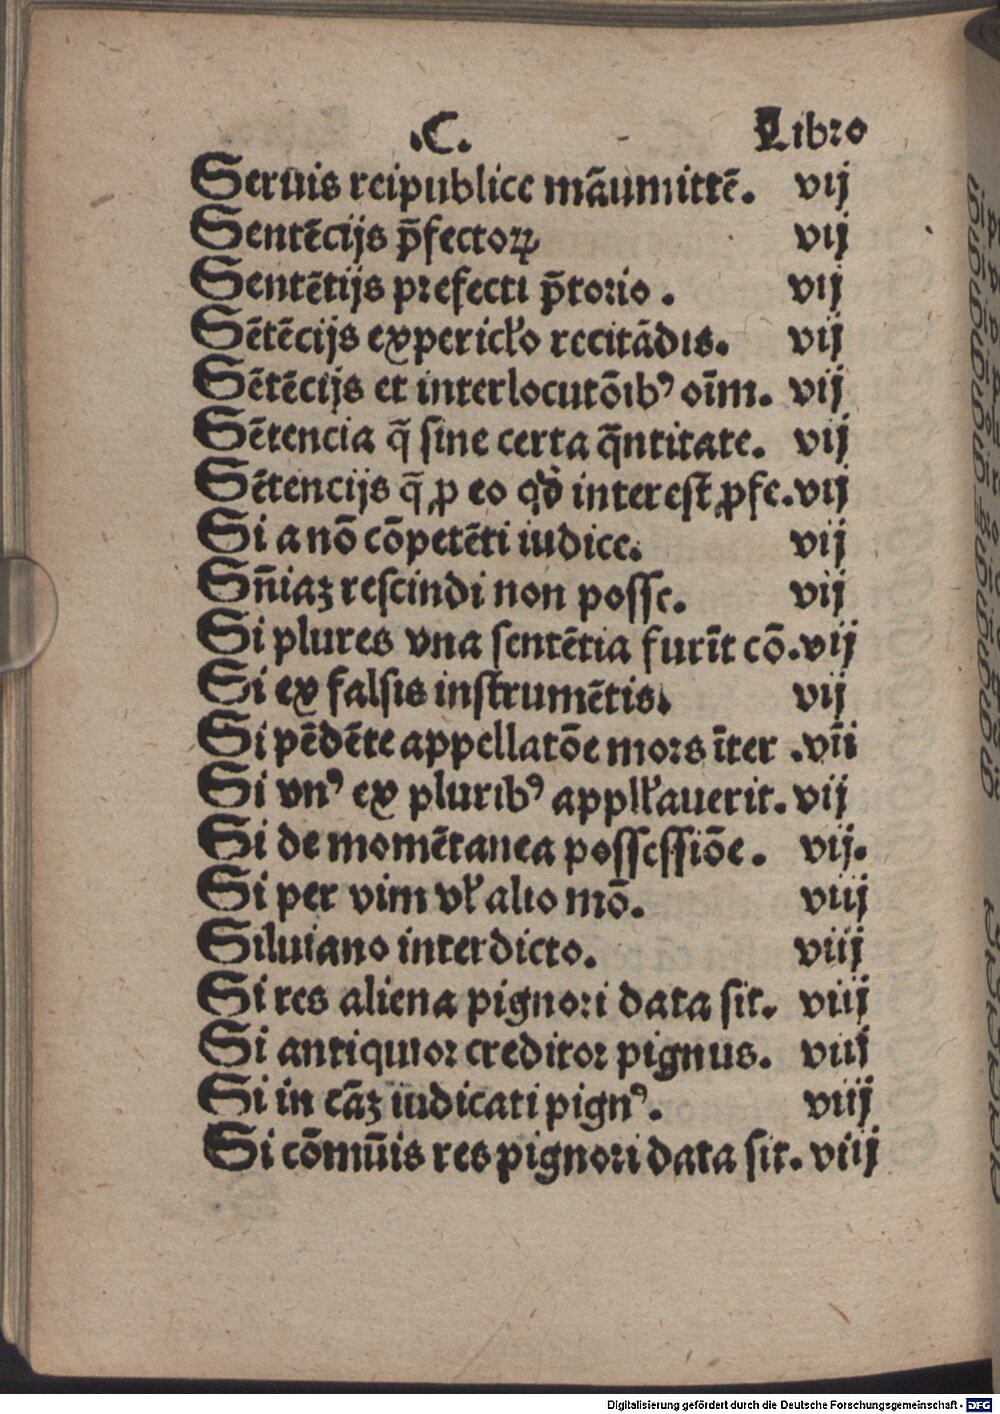 .C. Libro
Seruis reipublice māumittē. vij
Sentēcijs p̄fectoꝝ vij
Sentētijs prefecti p̄torio. vij
Sētēcijs expericło recitādis. vij
Sētēcijs et interlocutōibꝰ oīm. vij
Sētencia q̄ sine certa q̄ntitate. vij
Sētencijs q̄ ꝓ eo qd̄ interest ꝓfe. vij
Si a nō cōpetēti iudice. vij
Sn̄iaz rescindi non posse. vij
Si plures vna sentētia furīt cō. vij
Si ex falsis instrumētis. vij
Si pēdēte appellatōe mors īter. vii
Si vnꝰ ex pluribꝰ appłłauerit. vij
Si de momētanea possessiōe. vij.
Si per vim vł alio mō. viij
Siluiano interdicto. viij
Si res aliena pignori data sit. viij
Si antiquior creditor pignus. viij
Si in cāz iudicati pignꝰ. viij
Si cōmūis res pignori data sit. viij
Digitalisierung gefördert durch die Deutsche Forschungsgemeinschaft - DFG